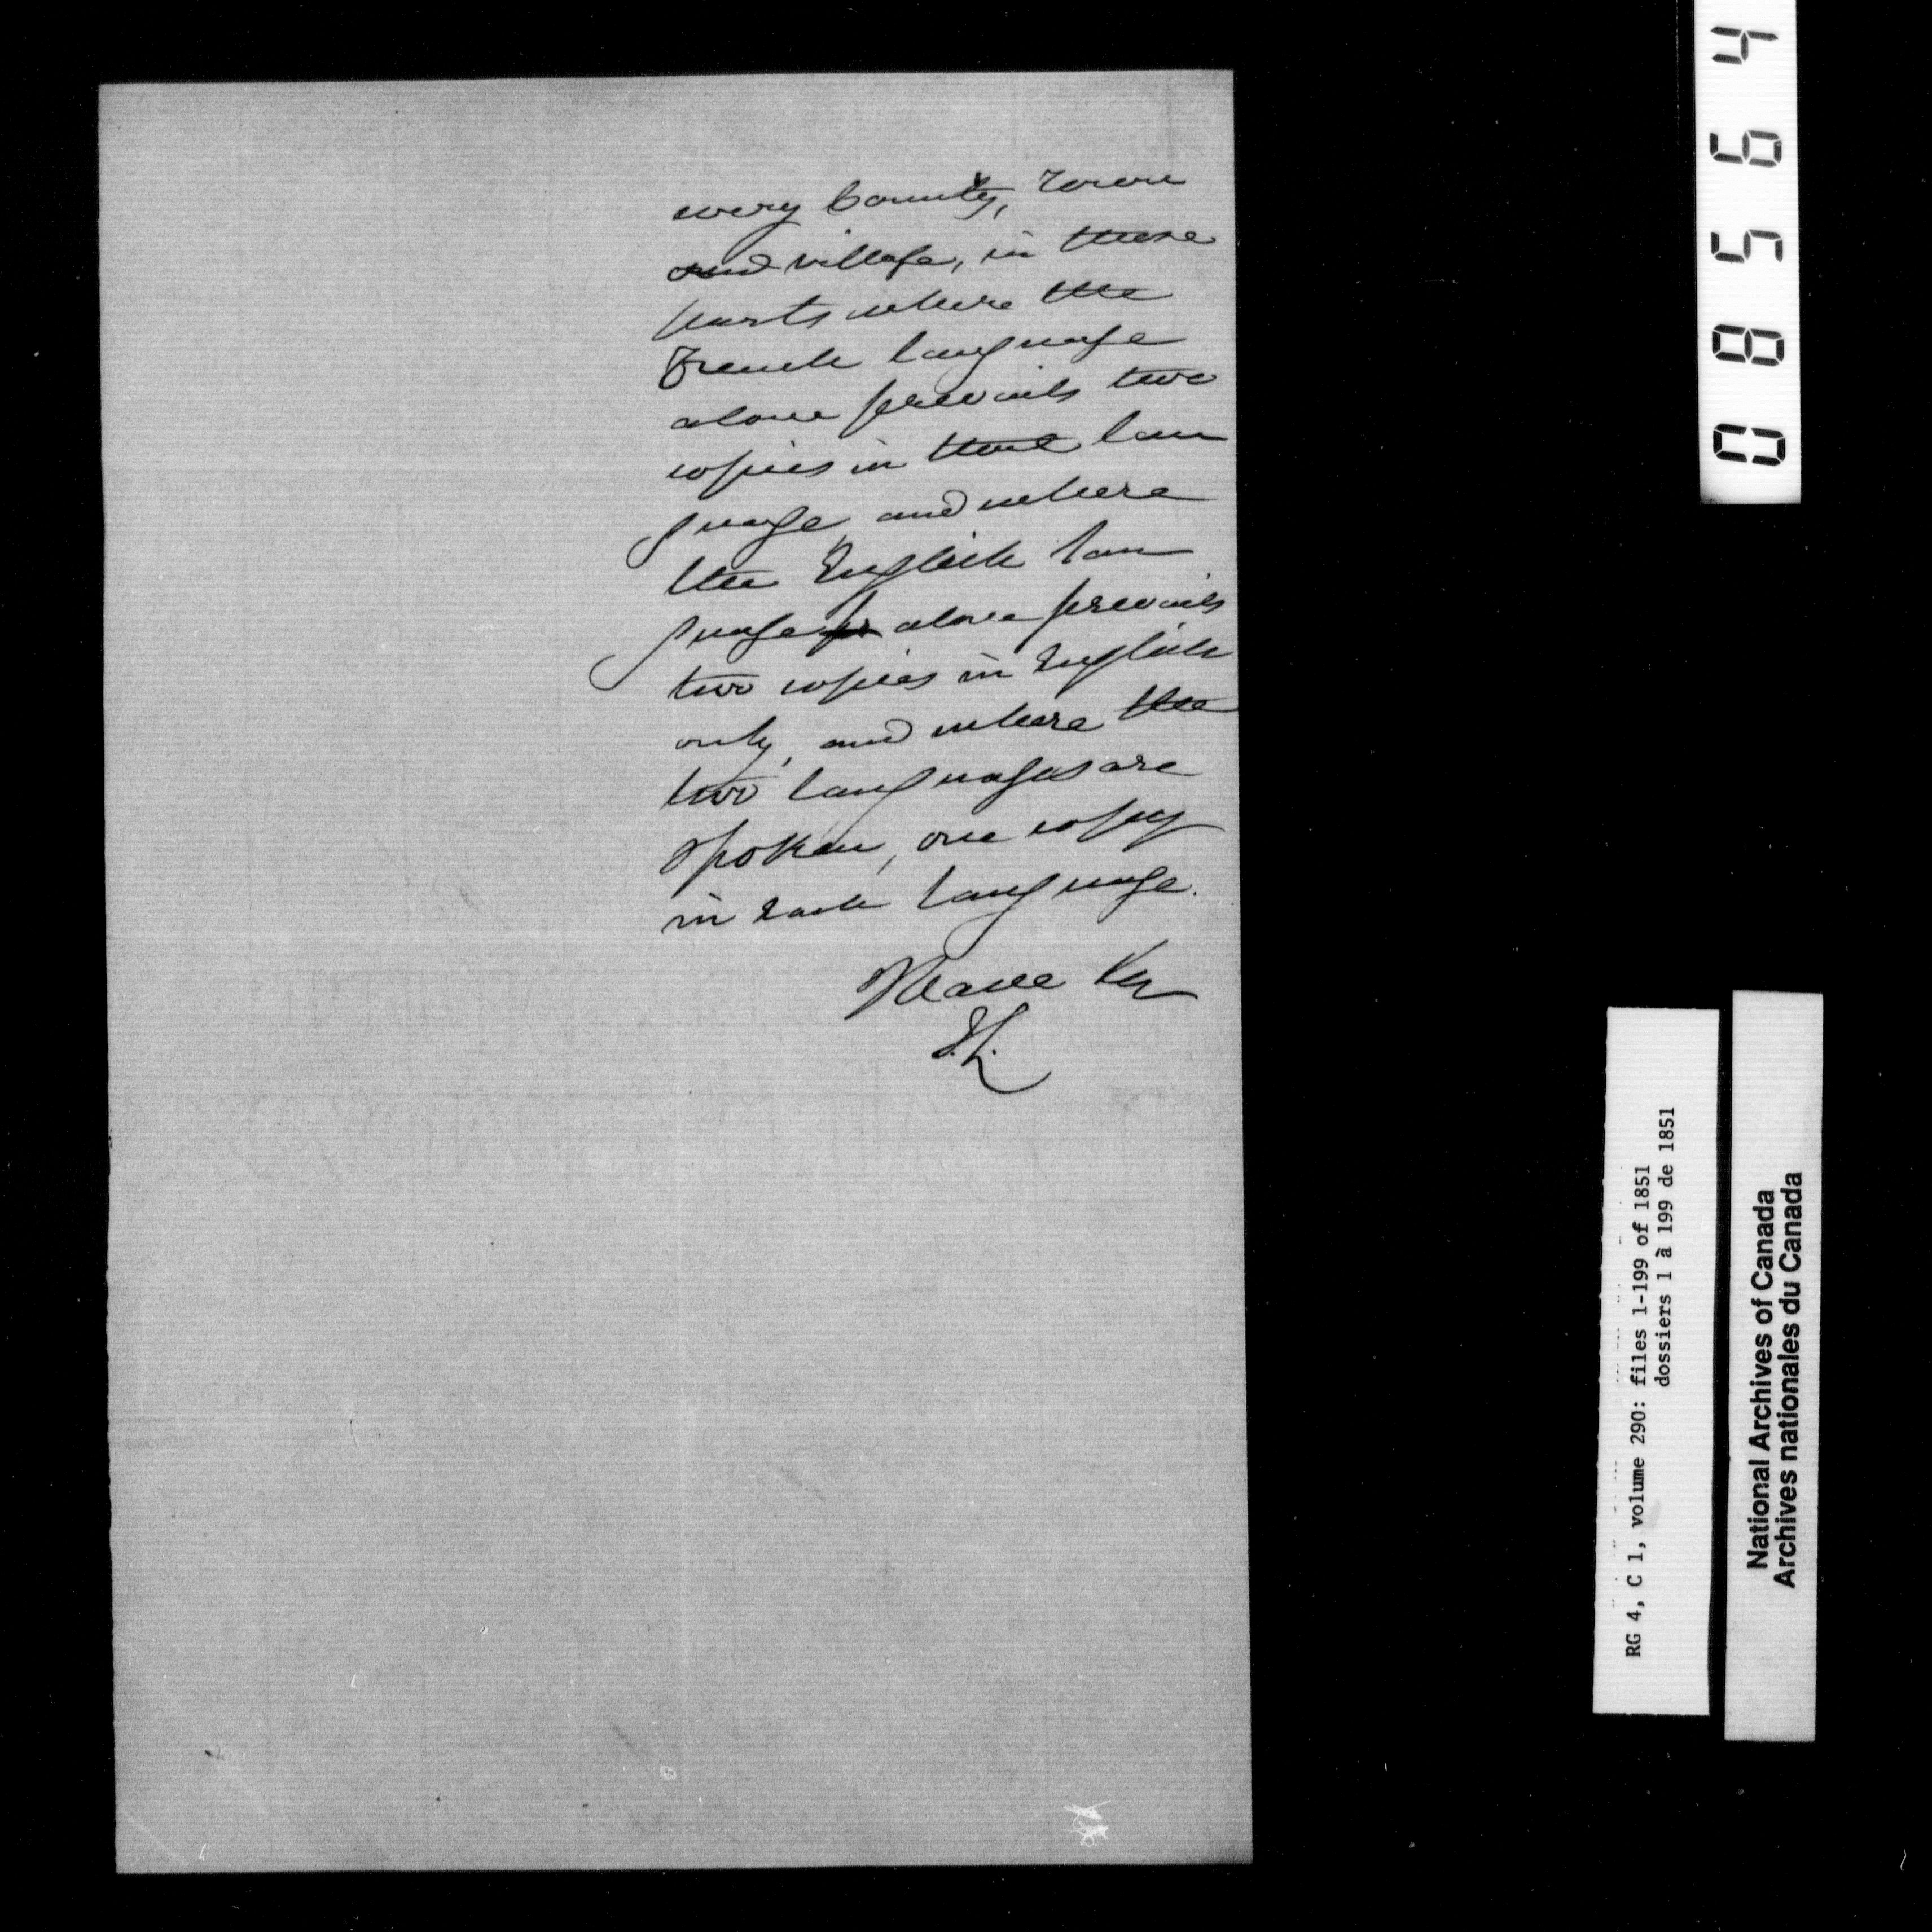 every County, Town
and village, in those
parts where the
French language
alone prevails two
copies in that lan
guage, and where
the English lan
guage alone prevails
two copies in English
only, and where the
two languages are
spoken, one copy
in each language.
08564
RG 4, C 1, volume 290: files 1-199 of 1851
dossiers 1 à 199 de 1851
National Archives of Canada
Archives nationales du Canada